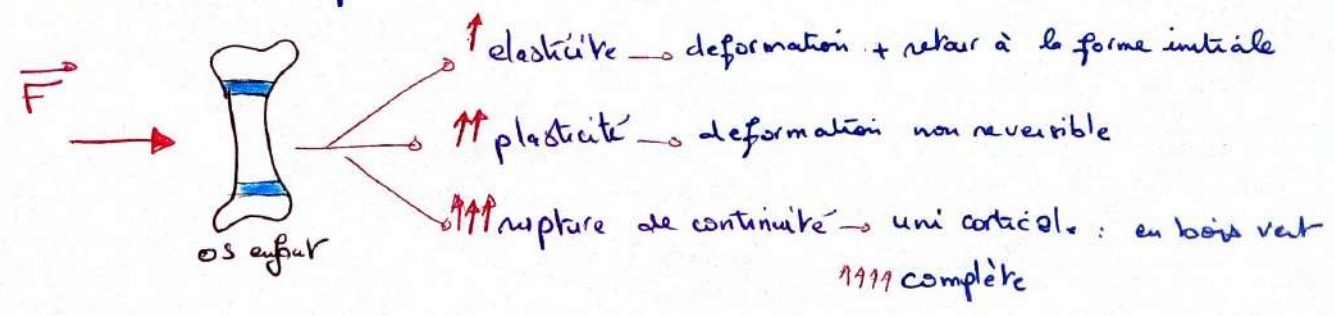 ↑ elasticité → deformation + retour à la forme initiale
F
↑↑ plasticité → deformation non reversible
↑↑↑ rupture de continuité → uni cortical. : en bois vert
os enfant
↑↑↑↑ complète